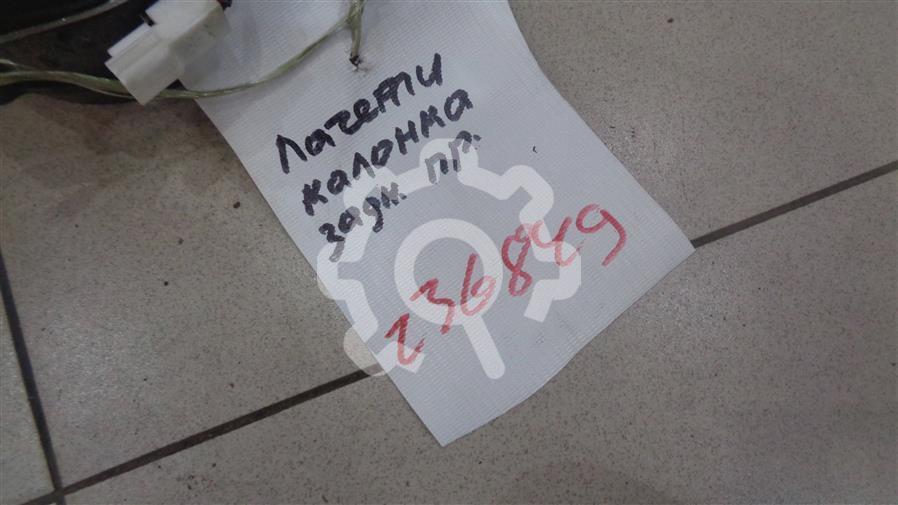 Лачетти
колонка
задн. пр.
236849